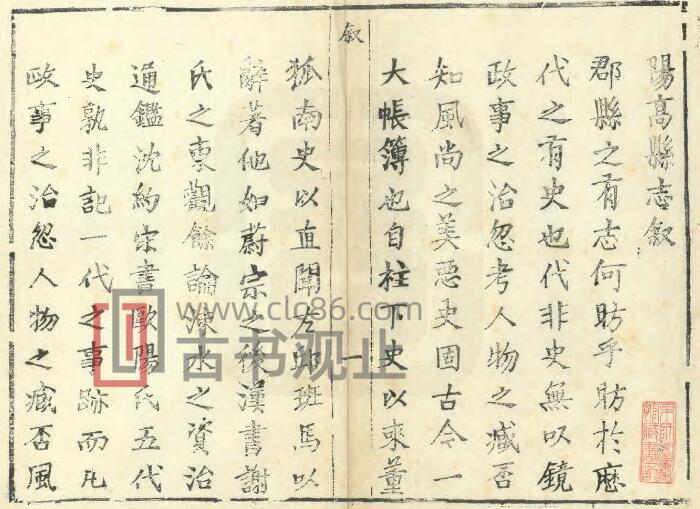 陽高縣志叙
郡縣之有志何昉乎昉於歷
代之有史也代非史無以鏡
政事之治忽考人物之臧否
知風尚之美惡史固古今一
大帳簿也自柱下史以來董
叙
一
狐南史以直聞左邱班馬以
辭著他如蔚宗之後漢書謝
氏之東觀餘論涑水之資治
通鑑沈約宋書歐陽氏五代
史孰非記一代之事跡而凡
政事之治忽人物之臧否風
www.clc86.com
古书观止